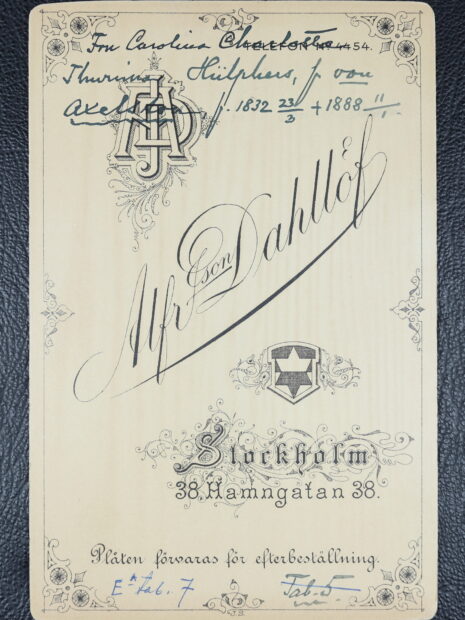 Fru Carolina Charlotta
TELEFON Nº 4454.
Thurinna Hülphers, f. von
Axelson, f. 1832 23/3 + 1888 11/1
ADJ
Alfr. E:son Dahllöf
Stockholm
38, Hamngatan 38.
Plåten förvaras för efterbeställning.
Tab. 7 Tab. 5
J.B.